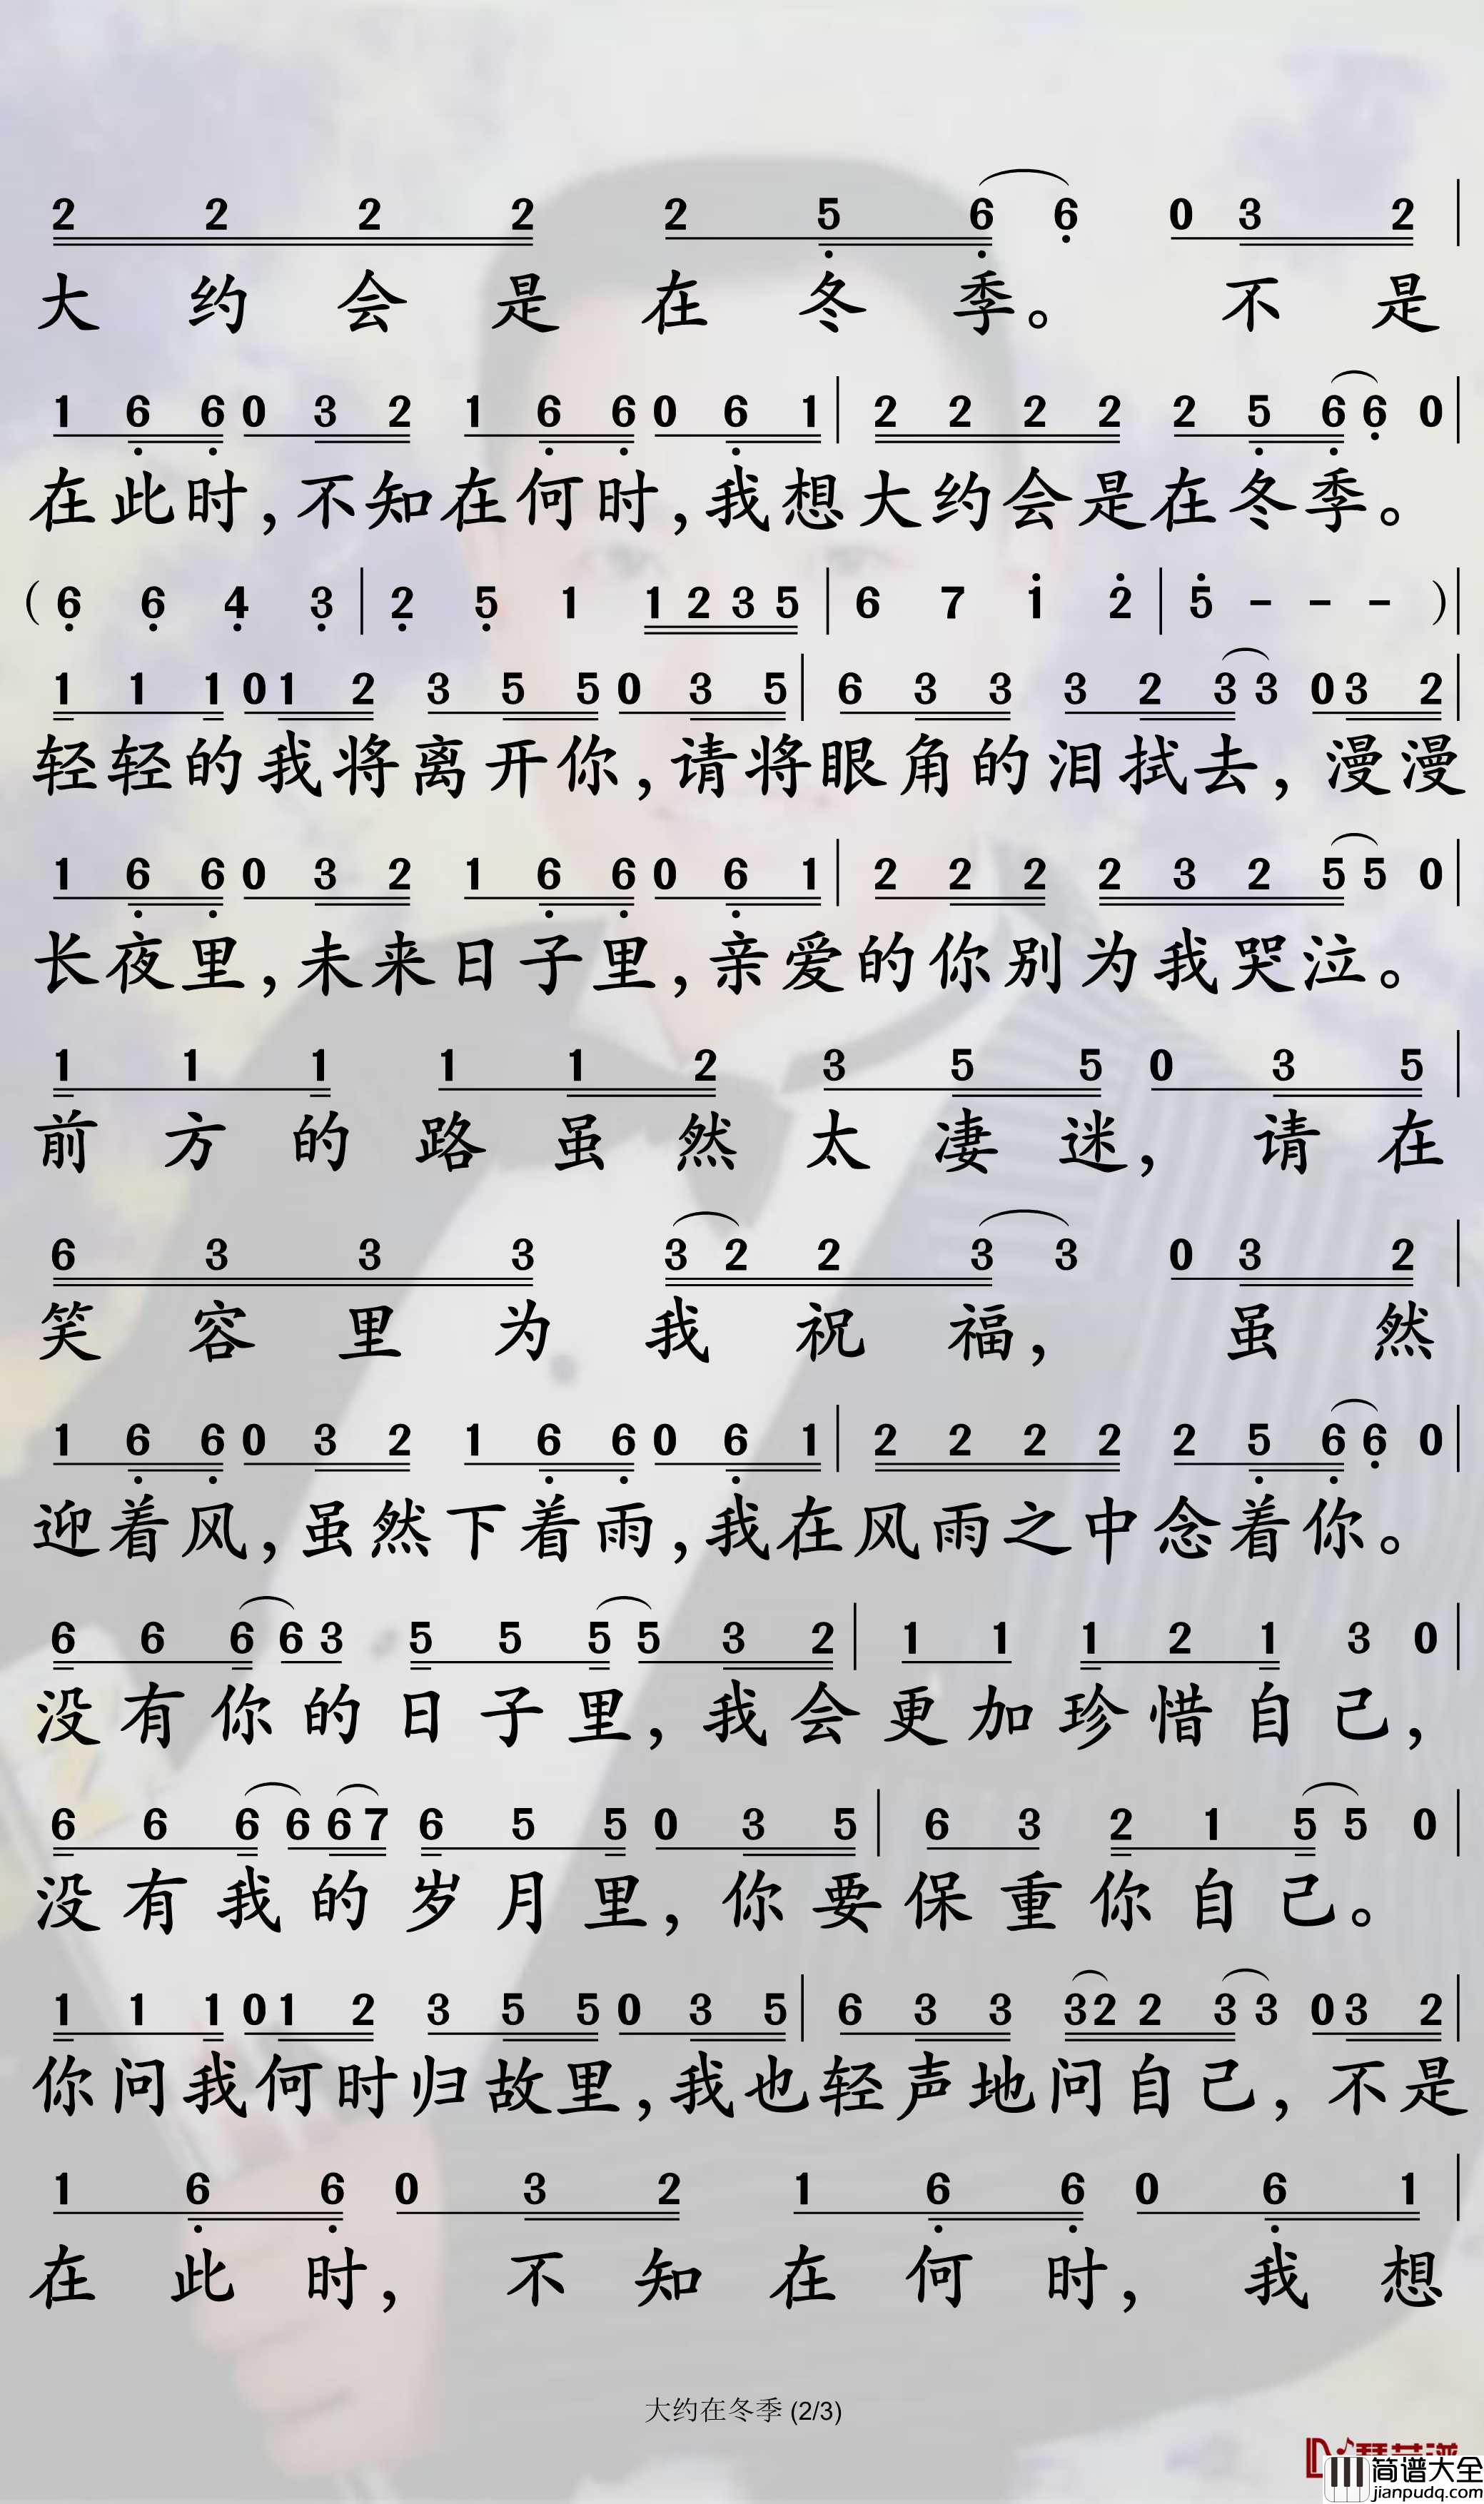 2 2 2 2 2 5 6 6 0 3 2
大约会是在冬季。不是
1 6 6 0 3 2 1 6 6 0 6 1 | 2 2 2 2 2 5 6 6 0
在此时,不知在何时,我想大约会是在冬季。
( 6 6 4 3 | 2 5 1 1 2 3 5 | 6 7 1 2 | 5 - - - )
1 1 1 0 1 2 3 5 5 0 3 5 | 6 3 3 3 2 3 3 0 3 2
轻轻的我将离开你,请将眼角的泪拭去,漫漫
1 6 6 0 3 2 1 6 6 0 6 1 | 2 2 2 2 3 2 5 5 0
长夜里,未来日子里,亲爱的你别为我哭泣。
1 1 1 1 1 2 3 5 5 0 3 5
前方的路虽然太凄迷,请在
6 3 3 3 3 2 2 3 3 0 3 2
笑容里为我祝福,虽然
1 6 6 0 3 2 1 6 6 0 6 1 | 2 2 2 2 2 5 6 6 0
迎着风,虽然下着雨,我在风雨之中念着你。
6 6 6 6 3 5 5 5 5 3 2 | 1 1 1 2 1 3 0
没有你的日子里,我会更加珍惜自己,
6 6 6 6 6 7 6 5 5 0 3 5 | 6 3 2 1 5 5 0
没有我的岁月里,你要保重你自己。
1 1 1 0 1 2 3 5 5 0 3 5 | 6 3 3 3 2 2 3 3 0 3 2
你问我何时归故里,我也轻声地问自己,不是
1 6 6 0 3 2 1 6 6 0 6 1
在此时,不知在何时,我想
大约在冬季 (2/3)
简谱大全
jianpudq.com